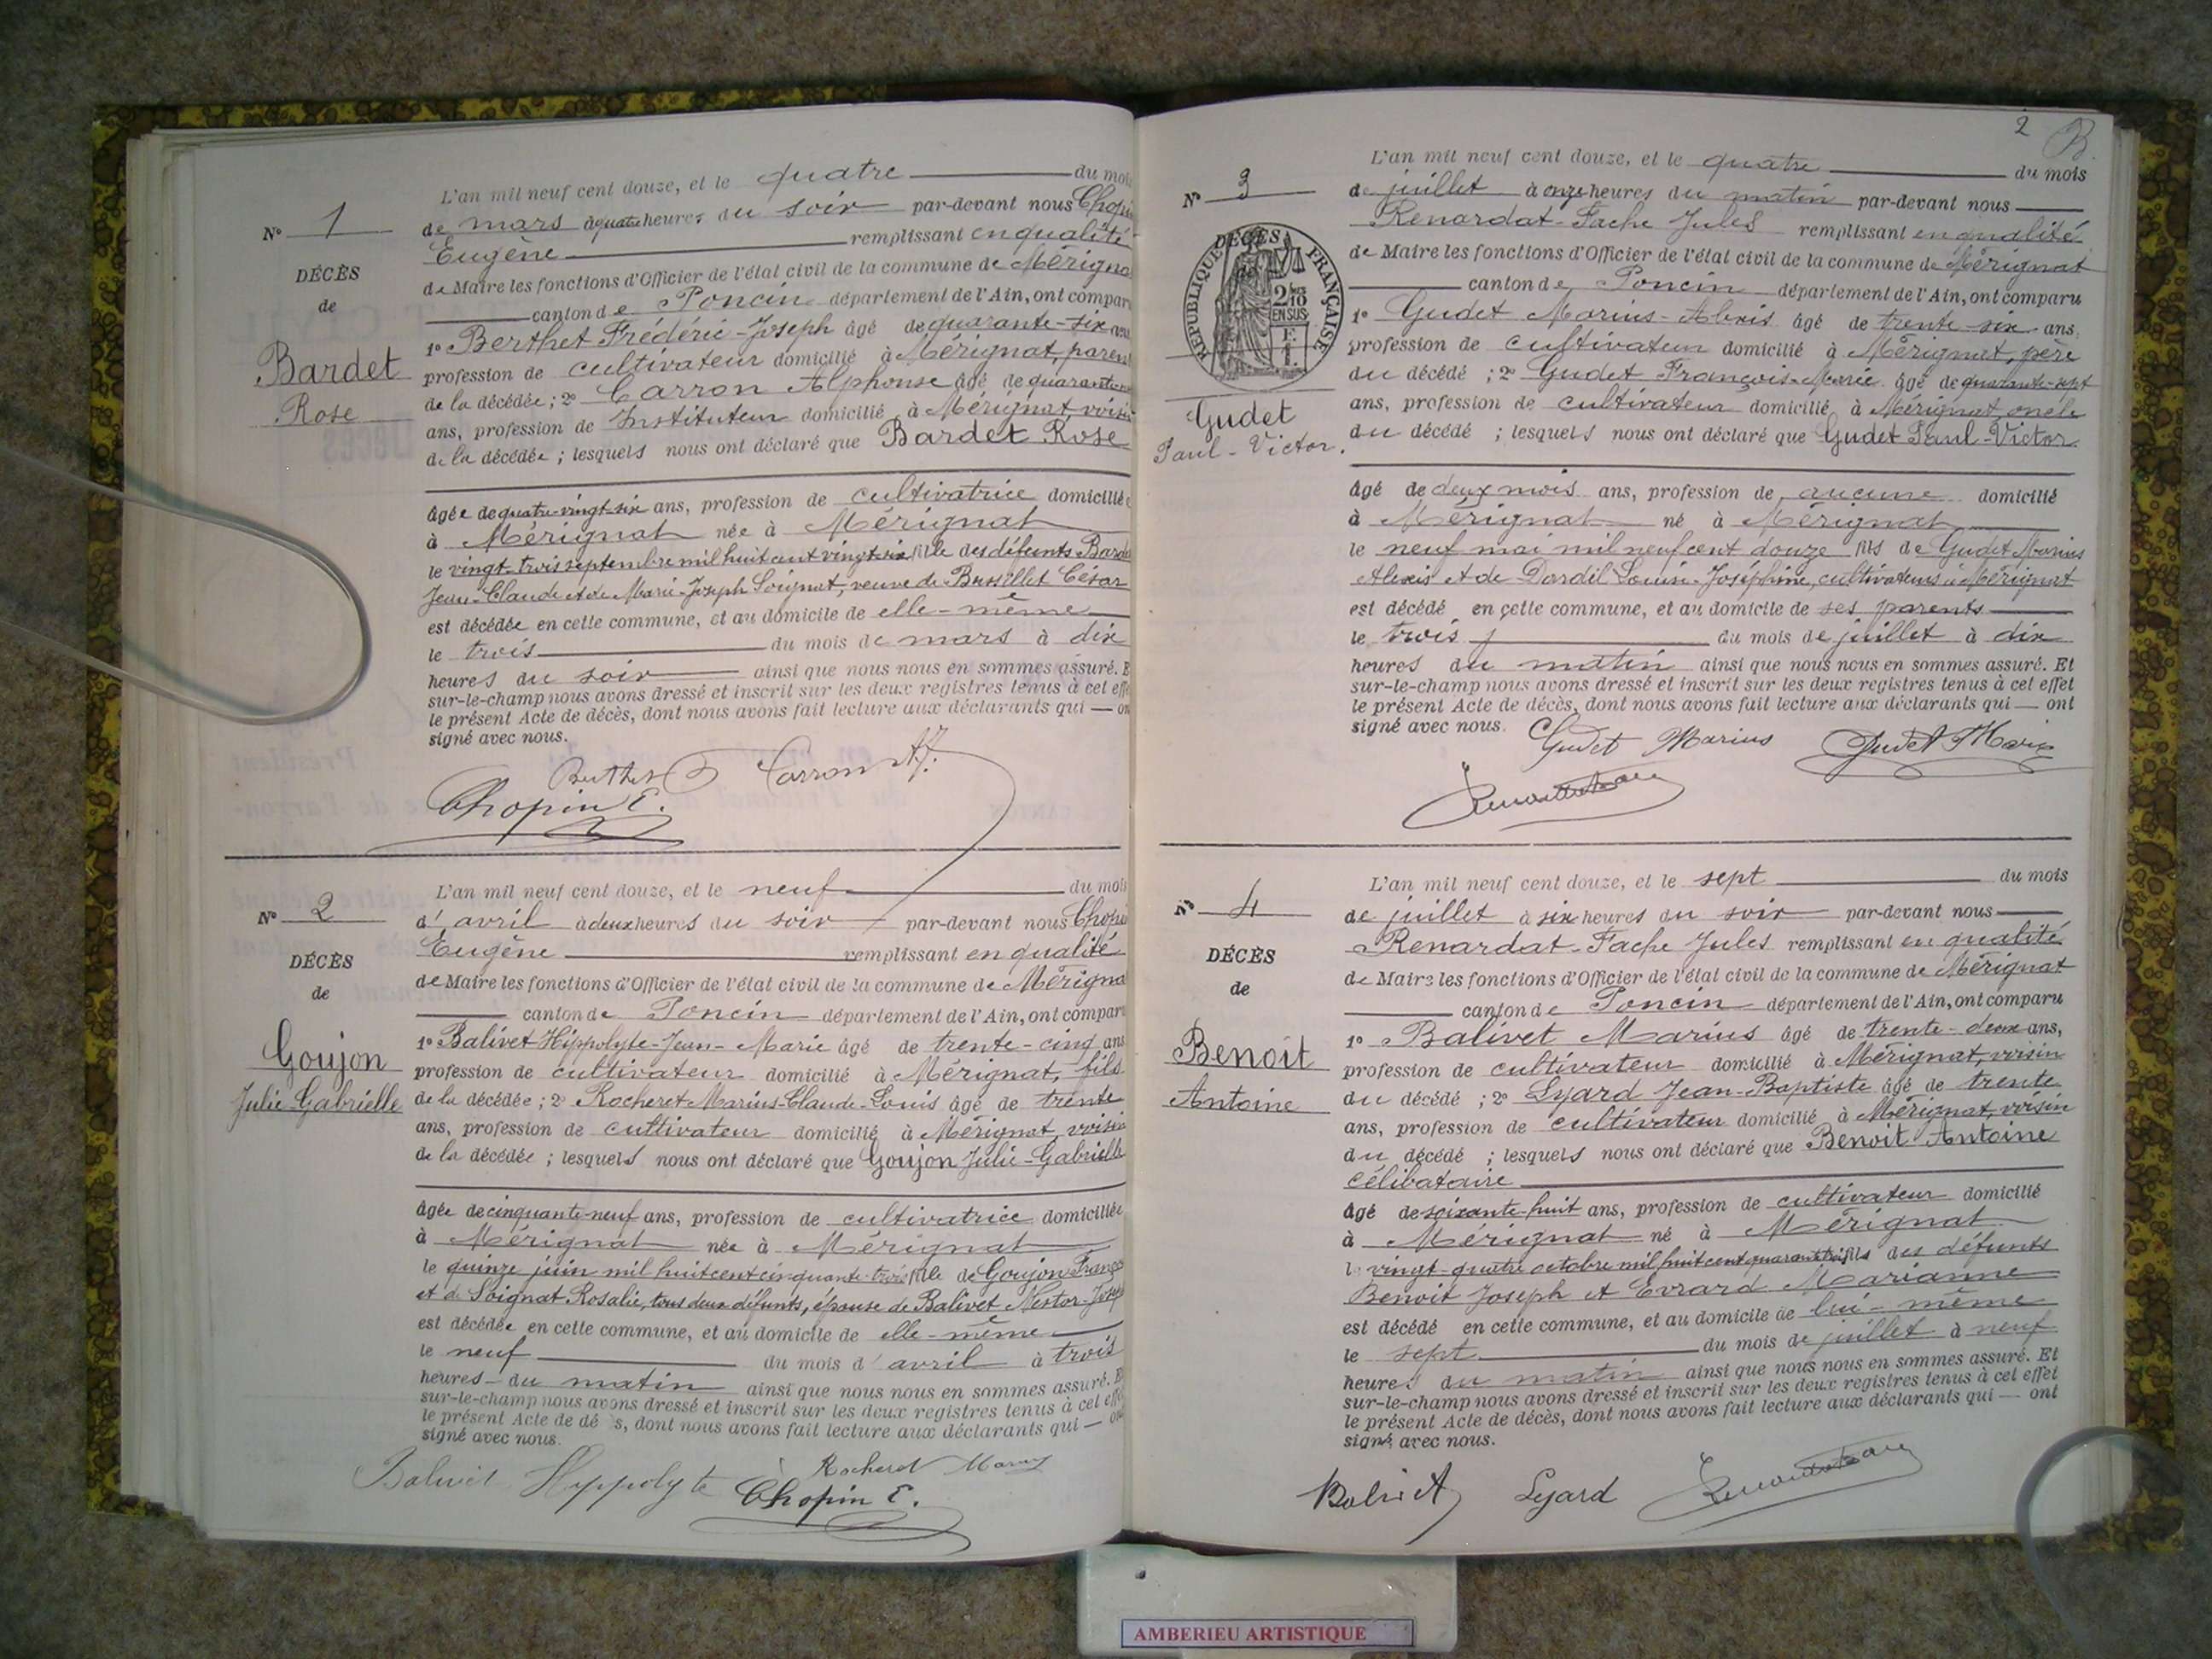 N° 1
DÉCÈS
de
Bardet
Rose
L'an mil neuf cent douze, et le quatre du mois
de mars à quatre heures du soir par-devant nous Chopin
Eugène remplissant en qualité
de Maire les fonctions d'Officier de l'état civil de la commune de Mérignat
canton de Poncin département de l'Ain, ont comparu
1° Berthet Frédéric-Joseph âgé de quarante-six ans
profession de cultivateur domicilié à Mérignat, parent
de la décédée ; 2° Carron Alphonse âgé de quarante
ans, profession de Instituteur domicilié à Mérignat, voisin
de la décédée ; lesquels nous ont déclaré que Bardet Rose
âgée de quatre-vingt-six ans, profession de cultivatrice domiciliée
à Mérignat née à Mérignat
le vingt-trois septembre mil huit cent vingt-six fille des défunts Bardet
Jean-Claude et de Marie-Joseph Soignat, veuve de Bussillet César
est décédée en cette commune, et au domicile de elle-même
le trois du mois de mars à dix
heures du soir ainsi que nous nous en sommes assuré. E
sur-le-champ nous avons dressé et inscrit sur les deux registres tenus à cet effe
le présent Acte de décès, dont nous avons fait lecture aux déclarants qui — on
signé avec nous.
Berthet Carron A.
Chopin E.
N° 2
DÉCÈS
de
Goujon
Julie-Gabrielle
L'an mil neuf cent douze, et le neuf du mois
d'avril à deux heures du soir par-devant nous Chopin
Eugène remplissant en qualité
de Maire les fonctions d'Officier de l'état civil de la commune de Mérignat
canton de Poncin département de l'Ain, ont comparu
1° Balivet Hippolyte-Jean-Marie âgé de trente-cinq ans
profession de cultivateur domicilié à Mérignat, fils
de la décédée ; 2° Rocheret Marius-Claude-Louis âgé de trente
ans, profession de cultivateur domicilié à Mérignat, voisin
de la décédée ; lesquels nous ont déclaré que Goujon Julie-Gabrielle
âgée de cinquante-neuf ans, profession de cultivatrice domiciliée
à Mérignat née à Mérignat
le quinze juin mil huit cent cinquante-trois fille de Goujon François
et de Soignat Rosalie, tous deux défunts, épouse de Balivet Nestor-Joseph
est décédée en cette commune, et au domicile de elle-même
le neuf du mois d'avril à trois
heures du matin ainsi que nous nous en sommes assuré. E
sur-le-champ nous avons dressé et inscrit sur les deux registres tenus à cet effe
le présent Acte de dé s, dont nous avons fait lecture aux déclarants qui — on
signé avec nous.
Balivet Hyppolyte Rocheret Marius
Chopin E.
2 B
N° 3
DÉCÈS
RÉPUBLIQUE FRANÇAISE
2/10
EN SUS
Gudet
Paul-Victor.
L'an mil neuf cent douze, et le quatre du mois
de juillet à onze heures du matin par-devant nous
Renardat-Fache Jules remplissant en qualité
de Maire les fonctions d'Officier de l'état civil de la commune de Mérignat
canton de Poncin département de l'Ain, ont comparu
1° Gudet Marius-Alexis âgé de trente-six ans,
profession de cultivateur domicilié à Mérignat, père
du décédé ; 2° Gudet François-Marie âgé de quarante-sept
ans, profession de cultivateur domicilié à Mérignat, oncle
du décédé ; lesquels nous ont déclaré que Gudet Paul-Victor
âgé de deux mois ans, profession de aucune domicilié
à Mérignat né à Mérignat
le neuf mai mil neuf cent douze fils de Gudet Marius
Alexis et de Dardil Louise-Joséphine, cultivateurs à Mérignat
est décédé en cette commune, et au domicile de ses parents
le trois du mois de juillet à dix
heures du matin ainsi que nous nous en sommes assuré. Et
sur-le-champ nous avons dressé et inscrit sur les deux registres tenus à cet effet
le présent Acte de décès, dont nous avons fait lecture aux déclarants qui — ont
signé avec nous.
Gudet Marius Gudet F Marie
N° 4
DÉCÈS
de
Benoit
Antoine
L'an mil neuf cent douze, et le sept du mois
de juillet à six heures du soir par-devant nous
Renardat-Fache Jules remplissant en qualité
de Maire les fonctions d'Officier de l'état civil de la commune de Mérignat
canton de Poncin département de l'Ain, ont comparu
1° Balivet Marius âgé de trente-deux ans,
profession de cultivateur domicilié à Mérignat, voisin
du décédé ; 2° Lyard Jean-Baptiste âgé de trente
ans, profession de cultivateur domicilié à Mérignat, voisin
du décédé ; lesquels nous ont déclaré que Benoit Antoine
célibataire
âgé de soixante-huit ans, profession de cultivateur domicilié
à Mérignat né à Mérignat
le vingt-quatre octobre mil huit cent quarante-trois fils des défunts
Benoit Joseph et Evrard Marianne
est décédé en cette commune, et au domicile de lui-même
le sept du mois de juillet à neuf
heures du matin ainsi que nous nous en sommes assuré. Et
sur-le-champ nous avons dressé et inscrit sur les deux registres tenus à cet effet
le présent Acte de décès, dont nous avons fait lecture aux déclarants qui — ont
signé avec nous.
Balivet Lyard
AMBERIEU ARTISTIQUE